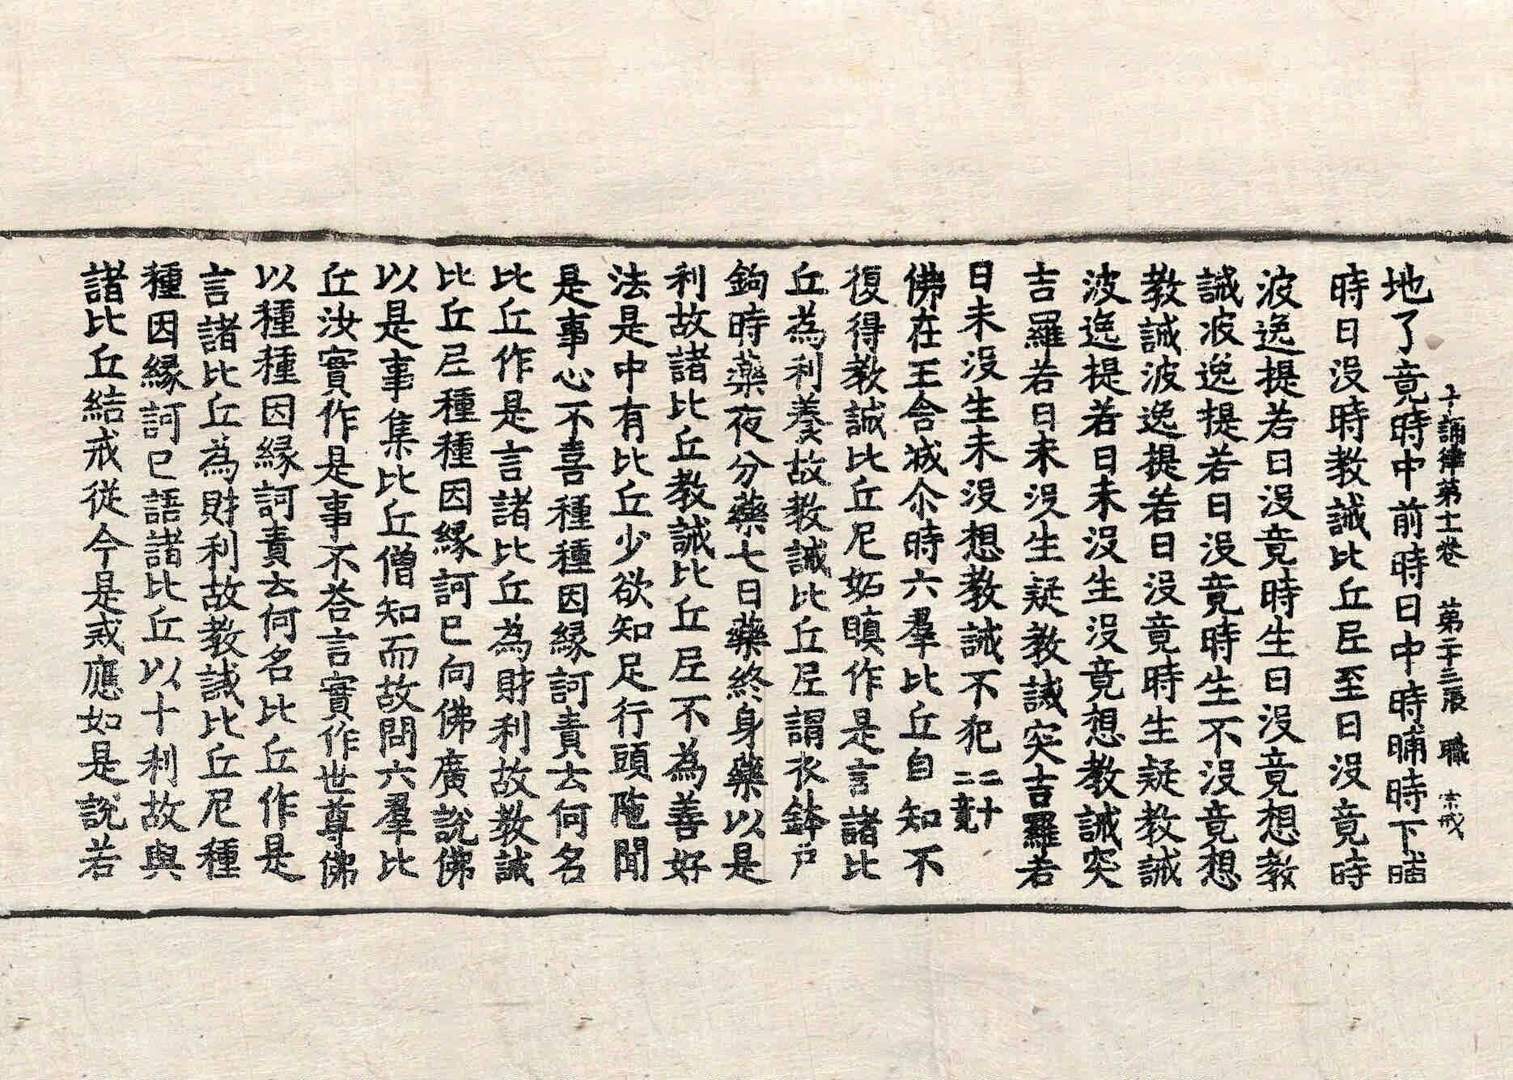 地了竟時中前時日中時晡時下晡
十誦律第十一卷　第二十三張　職　宗戒
時日没時教誡比丘尼至日没竟時
波逸提若日没竟時生日没竟想教
誡波逸提若日没竟時生不没竟想
教誡波逸提若日没竟時生疑教誡
波逸提若日未没生没竟想教誡突
吉羅若日未没生疑教誡突吉羅若
日未没生未没想教誡不犯二十二竟
佛在王舍城尒時六羣比丘自知不
復得教誡比丘尼妬瞋作是言諸比
丘為利養故教誡比丘尼謂衣鉢戶
鉤時藥夜分藥七日藥終身藥以是
利故諸比丘教誡比丘尼不為善好
法是中有比丘少欲知足行頭陁聞
是事心不喜種種因緣訶責云何名
比丘作是言諸比丘為財利故教誡
比丘尼種種因緣訶已向佛廣說佛
以是事集比丘僧知而故問六羣比
丘汝實作是事不荅言實作世尊佛
以種種因緣訶責云何名比丘作是
言諸比丘為財利故教誡比丘尼種
種因緣訶已語諸比丘以十利故與
諸比丘結戒從今是戒應如是說若